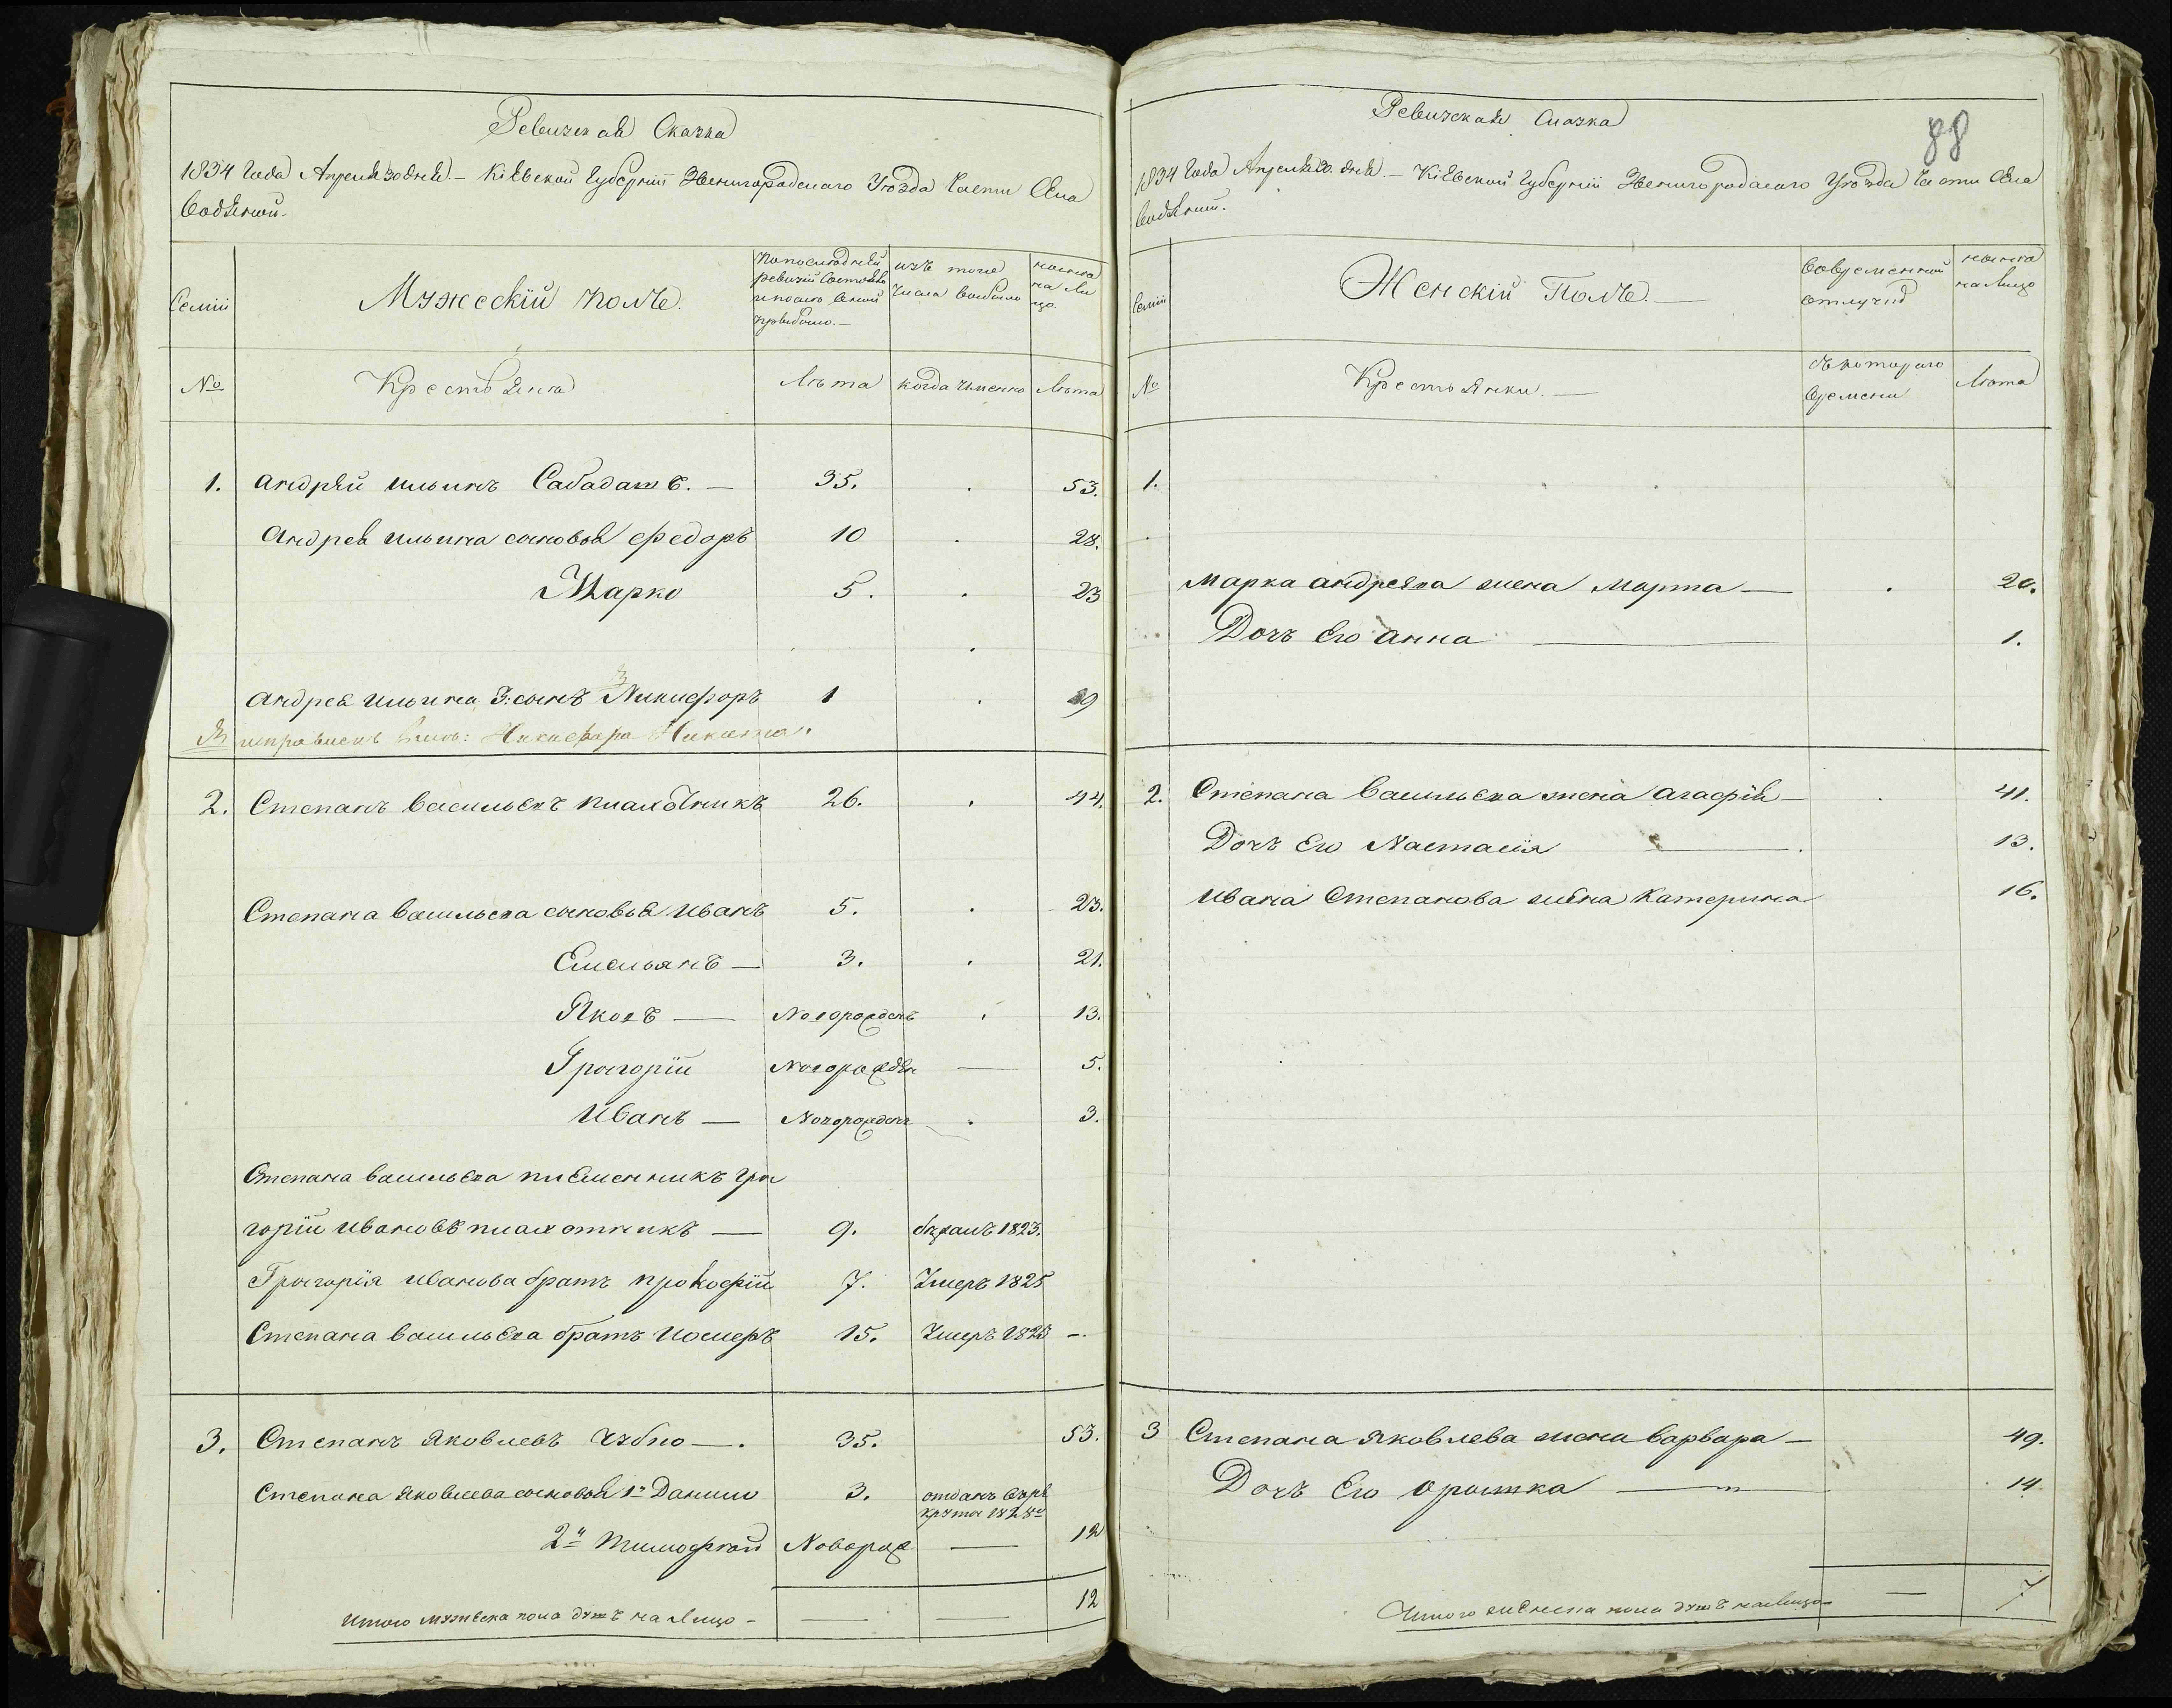 Ревизская Сказка
1834 Года Апреля 30 дня. – Кіевской Губерніи Звенигородскаго Уезда Части Села
Водяной.
Семіи
Мужескій полъ.
по последней
ревизіи состояло
и после оной
прибыло. –
изъ того
числа выбыло
ныне
на ли
цо.
№
Крестьяня
Лѣта
когда именно
Лѣта
1. Андрей Ильинъ Сабадашъ. – 35. 53.
Андрея Ильина сыновья Федоръ 10 28.
Марко 5. 23
Андрея Ильина 3: сынъ Никифоръ 1 19
Никифора Никита.
2. Степанъ Васильевъ Плахотникъ 26. 44.
Степана Васильева сыновья Иванъ 5. 23.
Емельянъ – 3. 21.
Яковъ – Новорожденъ 13.
Григорій Новорожден — 5.
Иванъ – Новорожденъ 3.
Степана Васильева племенникъ Гри
горій Ивановъ Плахотникъ — 9. бежалъ 1823.
Григорія Иванова братъ Прокофій 7. Умеръ 1825
Степана Васильева братъ Иосиеръ 15. Умеръ 1825 –
3. Степанъ Яковлевъ Чубко —. 35. 53.
Степана Яковлева сыновья 1й Данило 3. отданъ в ре
круты 1828го
2й Тимофей Новорож — 12
Итого мужеска пола душъ на лицо – — — 12
88
Ревизская Сказка
1834 Года Апреля 30. дня. – Кіевской Губерніи Звенигородскаго Уезда Части Села
Водяний.
Семіи
Женскій Полъ. —
Во временной
отлучке
ныне
на лицо
№
Крестьянки. —
Съ котораго
времени
Лета
1.
Марка Андреева жена Марта — 20.
Дочь Его Анна — 1.
2. Степана Васильева жена Агафія – 41.
Дочъ Его Настасія — 13.
Ивана Степанова жена Катерина 16.
3 Степана Яковлева жена Варвара – 49.
Дочъ Его Оришка — 14.
Итого женска пола душъ налицо – — 7